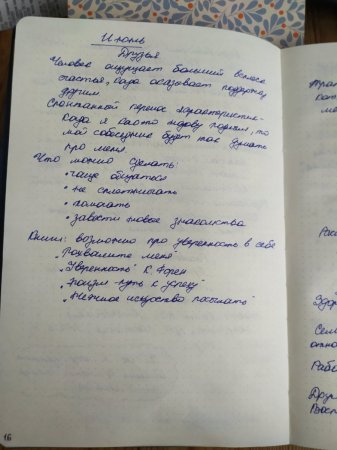 Июнь
Друзья
Человек ощущает больший всплеск
счастья, когда оказывает поддержку
другим
Спонтанный перенос характеристик
когда я кого-то подлым, то
мой собеседник будет так думать
про меня.
Что можно сделать:
• чаще общаться
• не сплетничать
• помогать
• завести новое знакомство
Книги: возможно про уверенность в себе
"Похвалите меня"
"Уверенность" К. Лорен
"Пофигизм путь к успеху"
"Нежное искусство посылать"
16
Рас
Здор
Сем
отно
Рабо
Друз